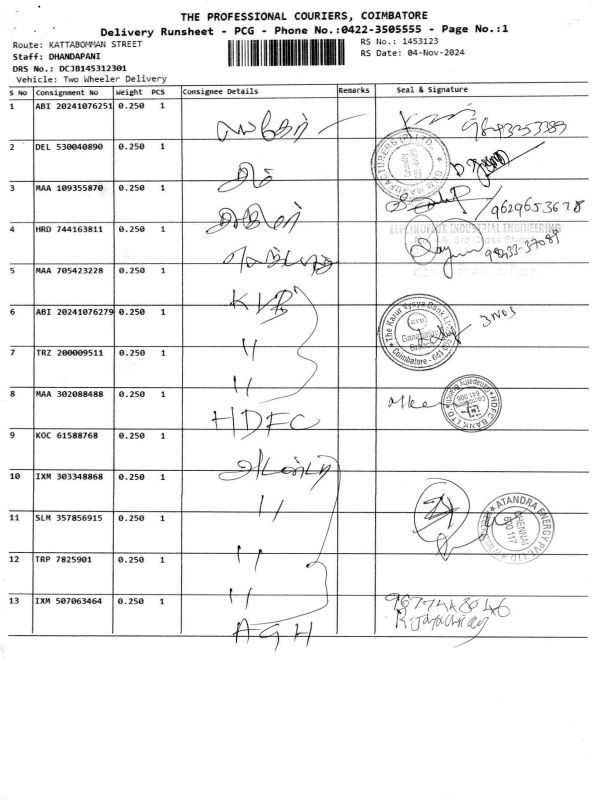 THE PROFESSIONAL COURIERS, COIMBATORE
Delivery Runsheet - PCG - Phone No.:0422-3505555 - Page No.:1
Route: KATTABOMMAN STREET
RS No.: 1453123
Staff: DHANDAPANI
RS Date: 04-Nov-2024
DRS No.: DCJB145312301
Vehicle: Two Wheeler Delivery
S No Consignment No Weight PCS Consignee Details Remarks Seal & Signature
1 ABI 20241076251 0.250 1
2 DEL 530040890 0.250 1
3 MAA 109355870 0.250 1
9629653678
4 HRD 744163811 0.250 1
ELECTROFLUX INDUSTRIAL ENGINEERING
98433-37089
5 MAA 705423228 0.250 1
KVB
6 ABI 20241076279 0.250 1 "
The Karur Vysya Bank Ltd
KVB
Coimbatore - 641
3 Nos
7 TRZ 200009511 0.250 1 "
8 MAA 302088488 0.250 1 HDFC
HDFC BANK LTD.
9 KOC 61588768 0.250 1
10 IXM 303348868 0.250 1 "
11 SLM 357856915 0.250 1 "
ATANDRA ENERGY PVT. LTD
CHENNAI
600 117
12 TRP 7825901 0.250 1 "
13 IXM 507063464 0.250 1 AGH